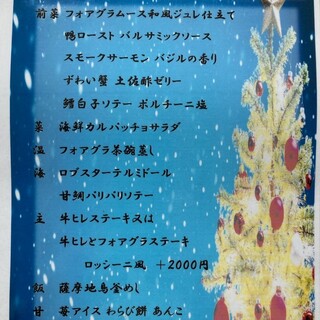 前菜 フォアグラムース和風ジュレ仕立て
鴨ロースト バルサミックソース
スモークサーモン バジルの香り
ずわい蟹 土佐酢ゼリー
鱈白子ソテー ポルチーニ塩
菜 海鮮カルパッチョサラダ
温 フォアグラ茶碗蒸し
海 ロブスターテルミドール
甘鯛パリパリソテー
主 牛ヒレステーキ又は
牛ヒレとフォアグラステーキ
ロッシーニ風 +2000円
飯 薩摩地鳥釜めし
甘 苺アイス わらび餅 あんこ